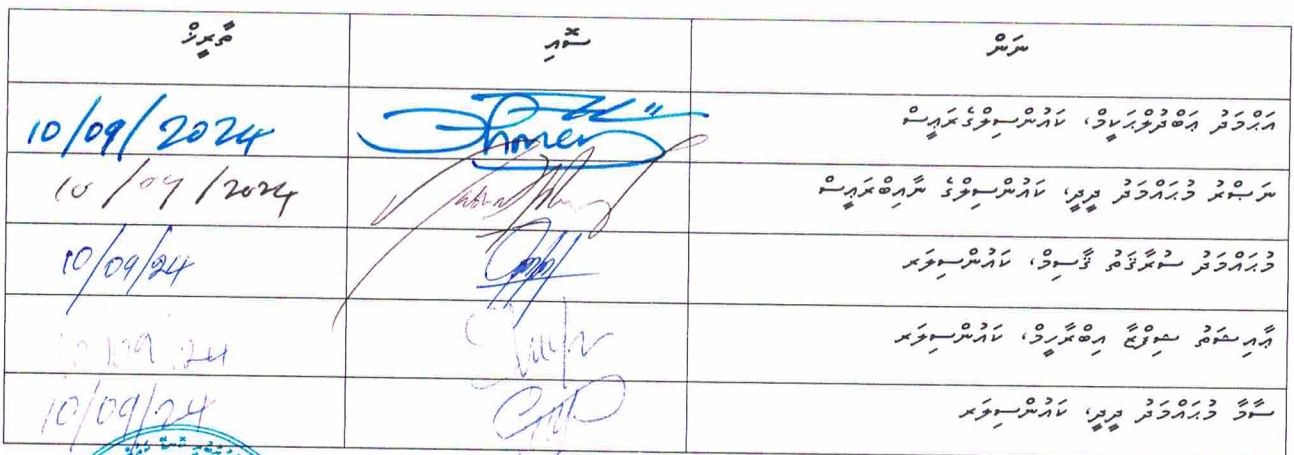 ނަން ސޮއި ތާރީޚް
އަޙްމަދު ޢަބްދުލްޙަކީމް، ކައުންސިލްގެރައީސް 10/09/2024
ނަޞްރު މުޙައްމަދު ދީދީ، ކައުންސިލްގެ ނާއިބްރައީސް 10/09/2024
މުޙައްމަދު ސުރާޤަތު ޤާސިމް، ކައުންސިލަރ 10/09/24
ޢާއިޝަތު ޝިފްޒާ އިބްރާހީމް، ކައުންސިލަރ 10/09/24
ސާމާ މުޙައްމަދު ދީދީ، ކައުންސިލަރ 10/09/24